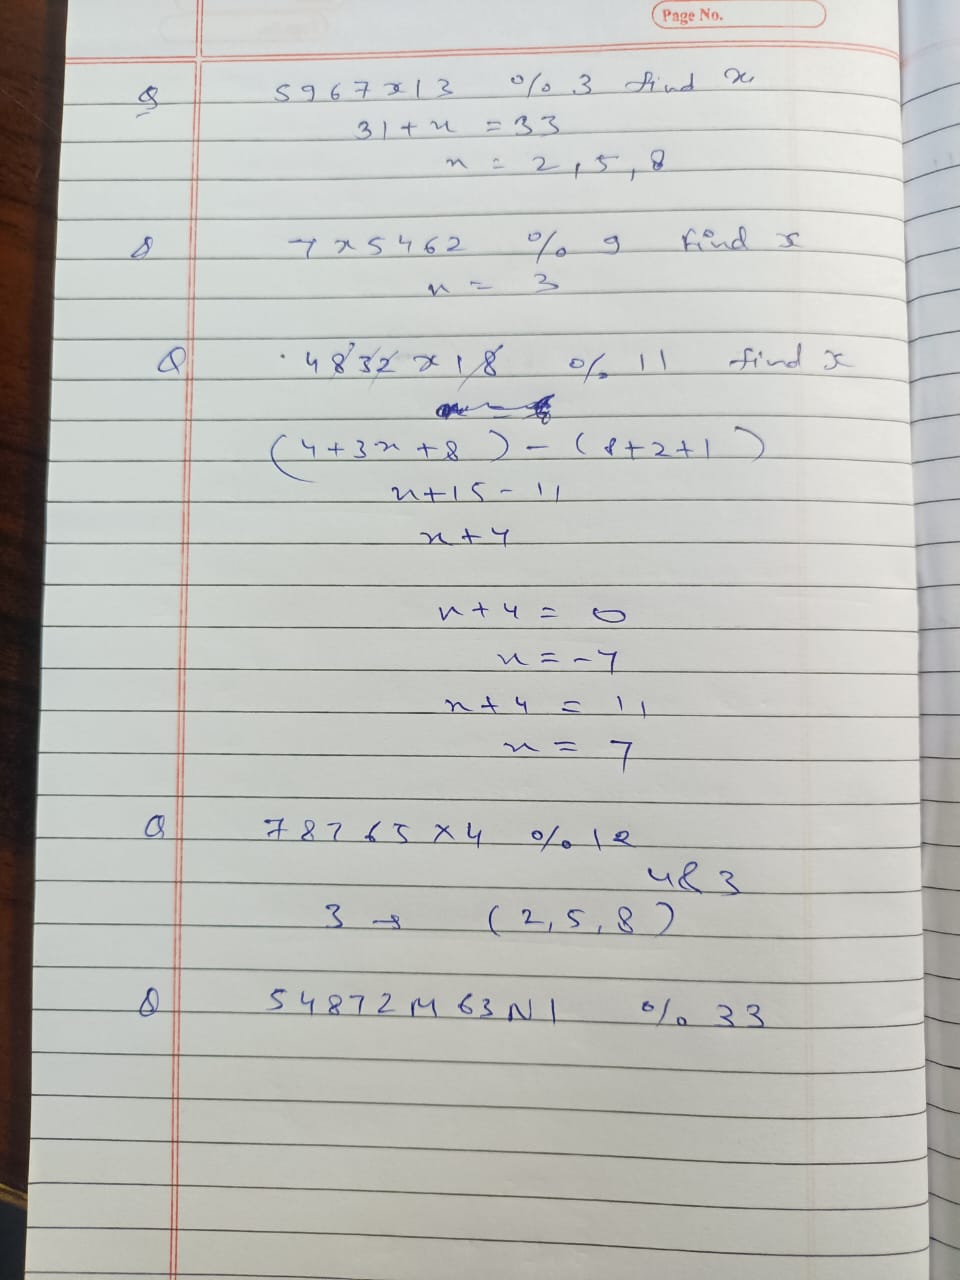 Page No.
Q 5967x13 % 3 find x
31 + x = 33
x = 2, 5, 8
Q 7x5462 % 9 find x
x = 3
Q 4832x18 % 11 find x
(4+3x+8) - (8+2+1)
x+15-11
x+4
x+4 = 0
x = -4
x+4 = 11
x = 7
Q 78765x4 % 12
4&3
3 → (2, 5, 8)
Q 54872M63N1 % 33